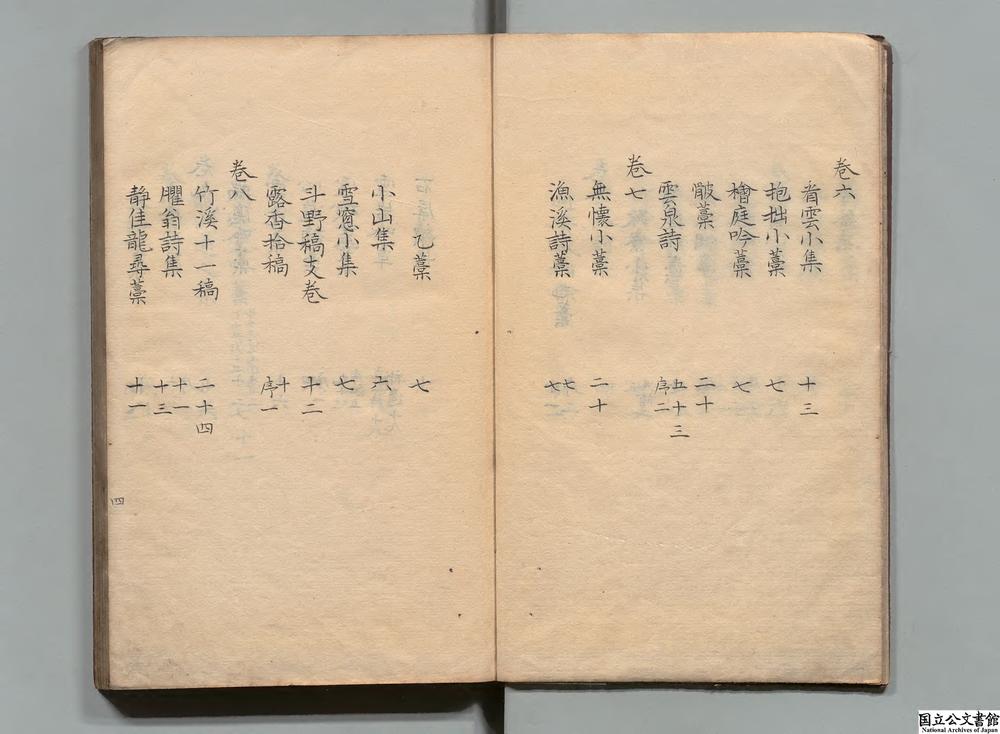 卷六
首雲小集 十三
抱拙小藁 七
檜庭吟藁 七
骳藁 二十
雲泉詩 五十三 序二
卷七
無懷小藁 二十
漁溪詩藁 七 七
乙藁 七
小山集 六
雪窓小集 七
斗野稿支卷 十二
露香拾稿 十 序一
卷八
竹溪十一稿 二十四
臞翁詩集 十一 十三
靜佳龍尋藁 十一
四
国立公文書館
National Archives of Japan